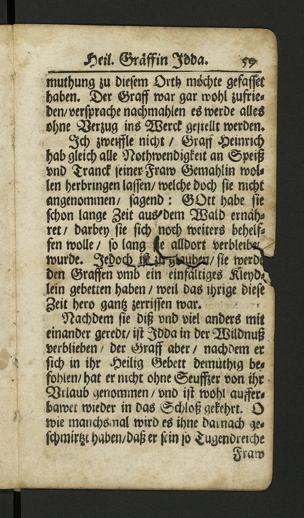 Heil. Gräffin Idda. 59
muthung zu diesem Orth möchte gefasset
haben. Der Graff war gar wohl zufrie-
den/versprache nachmahlen es werde alles
ohne Verzug ins Werck gestelt werden.
Ich zweiffle nicht / Graff Heinrich
hab gleich alle Nothwendigkeit an Speiß
vnd Tranck seiner Fraw Gemahlin wol-
len herbringen lassen/welche doch sie nicht
angenommen/ sagend: GOtt habe sie
schon lange Zeit aus dem Wald ernäh-
ret / darbey sie sich noch weiters behelf-
fen wolle / so lang sie alldort verbleiben
wurde. Jedoch ist zu glauben/ sie werde
den Graffen vmb ein einfältiges Kleyd-
lein gebetten haben / weil das ihrige diese
Zeit hero gantz zerrissen war.
Nachdem sie diß vnd viel anders mit
einander geredt/ ist Idda in der Wildnuß
verblieben / der Graff aber / nachdem er
sich in ihr Heilig Gebett demüthig be-
fohlen/ hat er nicht ohne Seuffzer von ihr
Vrlaub genommen / vnd ist wohl auffer-
bawet wieder in das Schloß gekehrt. O
wie manchsmal wird es ihne darnach ge-
schmirtzt haben/daß er sein so Tugendreiche
Fraw